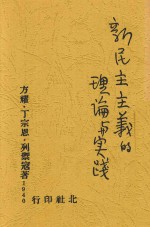 新民主主義的
理論与实践
方耀·丁宗恩·列御寇著
1940
北社印行